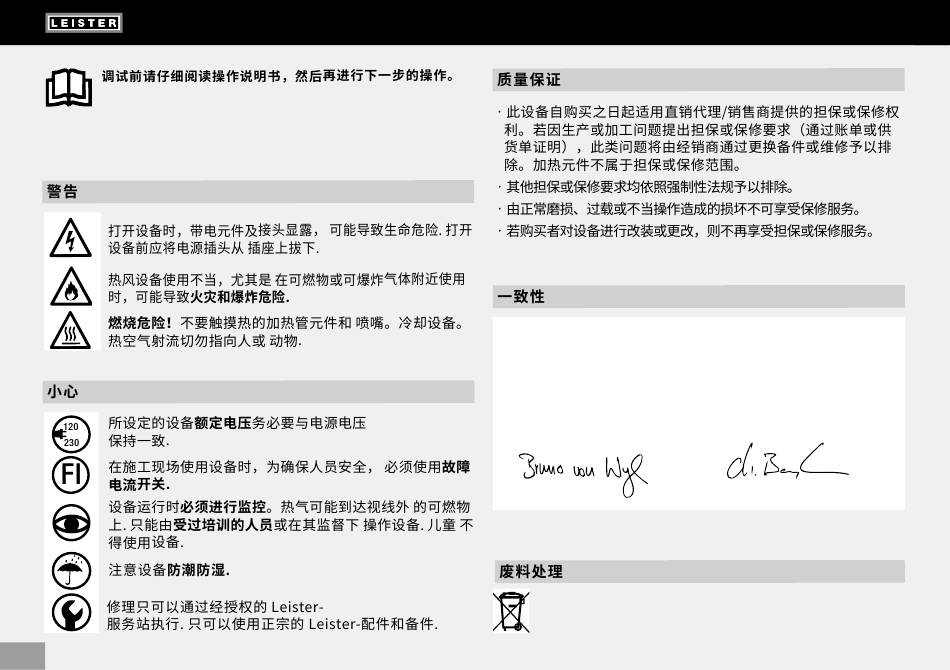 LEISTER
调试前请仔细阅读操作说明书，然后再进行下一步的操作。
警告
打开设备时，带电元件及接头显露， 可能导致生命危险. 打开
设备前应将电源插头从 插座上拔下.
热风设备使用不当，尤其是 在可燃物或可爆炸气体附近使用
时，可能导致火灾和爆炸危险.
燃烧危险！不要触摸热的加热管元件和 喷嘴。冷却设备。
热空气射流切勿指向人或 动物.
小心
120
230
所设定的设备额定电压务必要与电源电压
保持一致.
FI
在施工现场使用设备时，为确保人员安全， 必须使用故障
电流开关.
设备运行时必须进行监控。热气可能到达视线外 的可燃物
上. 只能由受过培训的人员或在其监督下 操作设备. 儿童 不
得使用设备.
注意设备防潮防湿.
修理只可以通过经授权的 Leister-
服务站执行. 只可以使用正宗的 Leister-配件和备件.
质量保证
· 此设备自购买之日起适用直销代理/销售商提供的担保或保修权
利。若因生产或加工问题提出担保或保修要求（通过账单或供
货单证明），此类问题将由经销商通过更换备件或维修予以排
除。加热元件不属于担保或保修范围。
· 其他担保或保修要求均依照强制性法规予以排除。
· 由正常磨损、过载或不当操作造成的损坏不可享受保修服务。
· 若购买者对设备进行改装或更改，则不再享受担保或保修服务。
一致性
Bruno von Wyl
废料处理